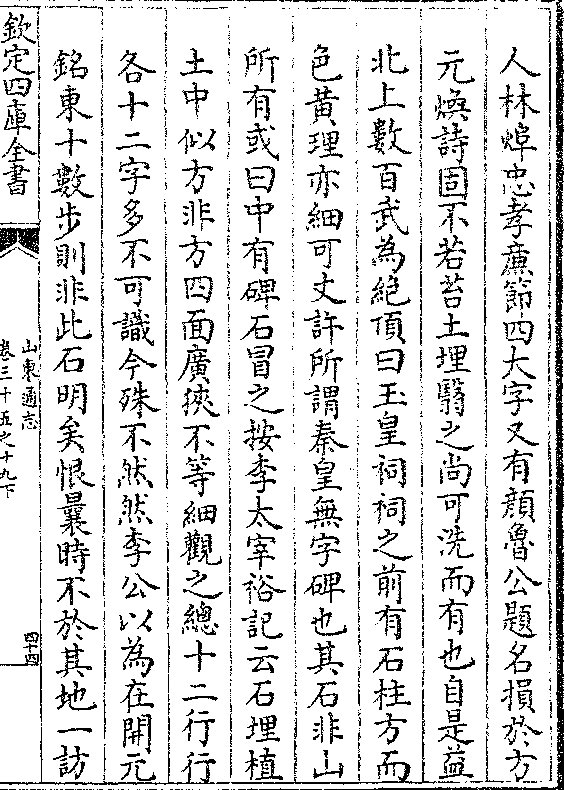 人林焞忠孝亷節四大字又有顔魯公題名損於方
元煥詩固不若苔土埋翳之尚可洗而有也自是益
北上數百武為絶頂曰玉皇祠祠之前有石柱方而
色黄理亦細可丈許所謂秦皇無字碑也其石非山
所有或曰中有碑石冒之按李太宰裕記云石埋植
土中似方非方四面廣狹不等細觀之總十二行行
各十二字多不可識今殊不然然李公以為在開元
銘東十數步則非此石明矣恨曩時不於其地一訪
欽定四庫全書
山東通志
卷三十五之十九下
四十四